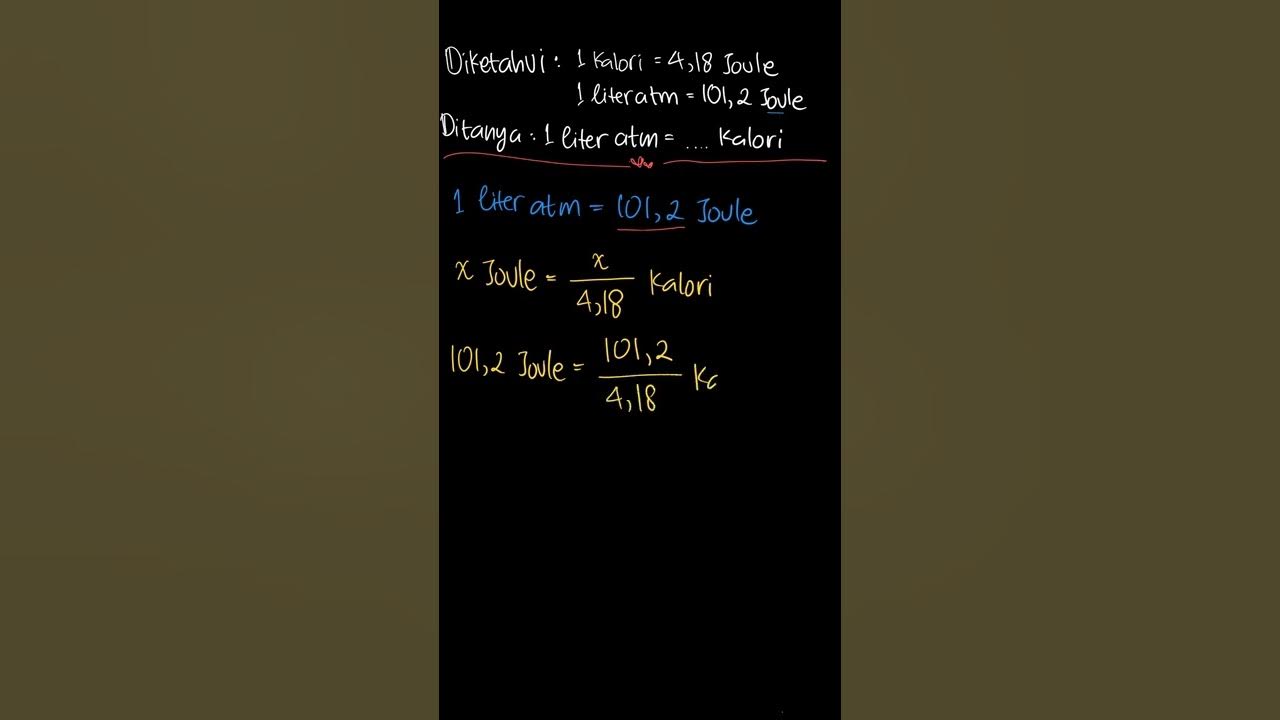 Diketahui : 1 Kalori = 4,18 Joule
1 liter atm = 101,2 Joule
Ditanya : 1 liter atm = .... Kalori
1 liter atm = 101,2 Joule
x Joule = x/4,18 Kalori
101,2 Joule = 101,2/4,18 Ka